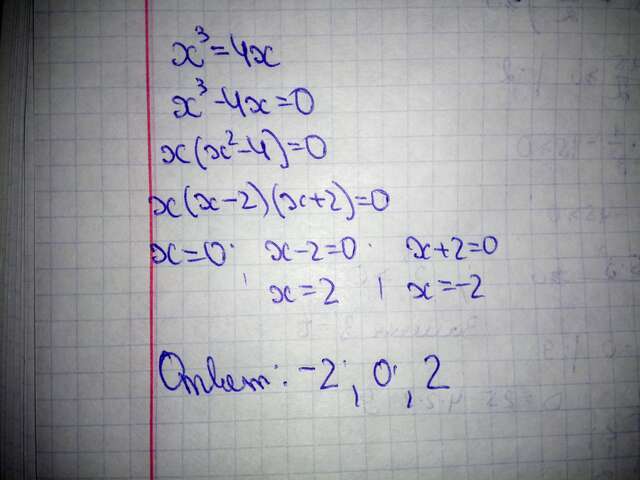 x³=4x
x³-4x=0
x(x²-4)=0
x(x-2)(x+2)=0
x=0; x-2=0; x+2=0
x=2 ; x=-2
Ответ: -2; 0; 2